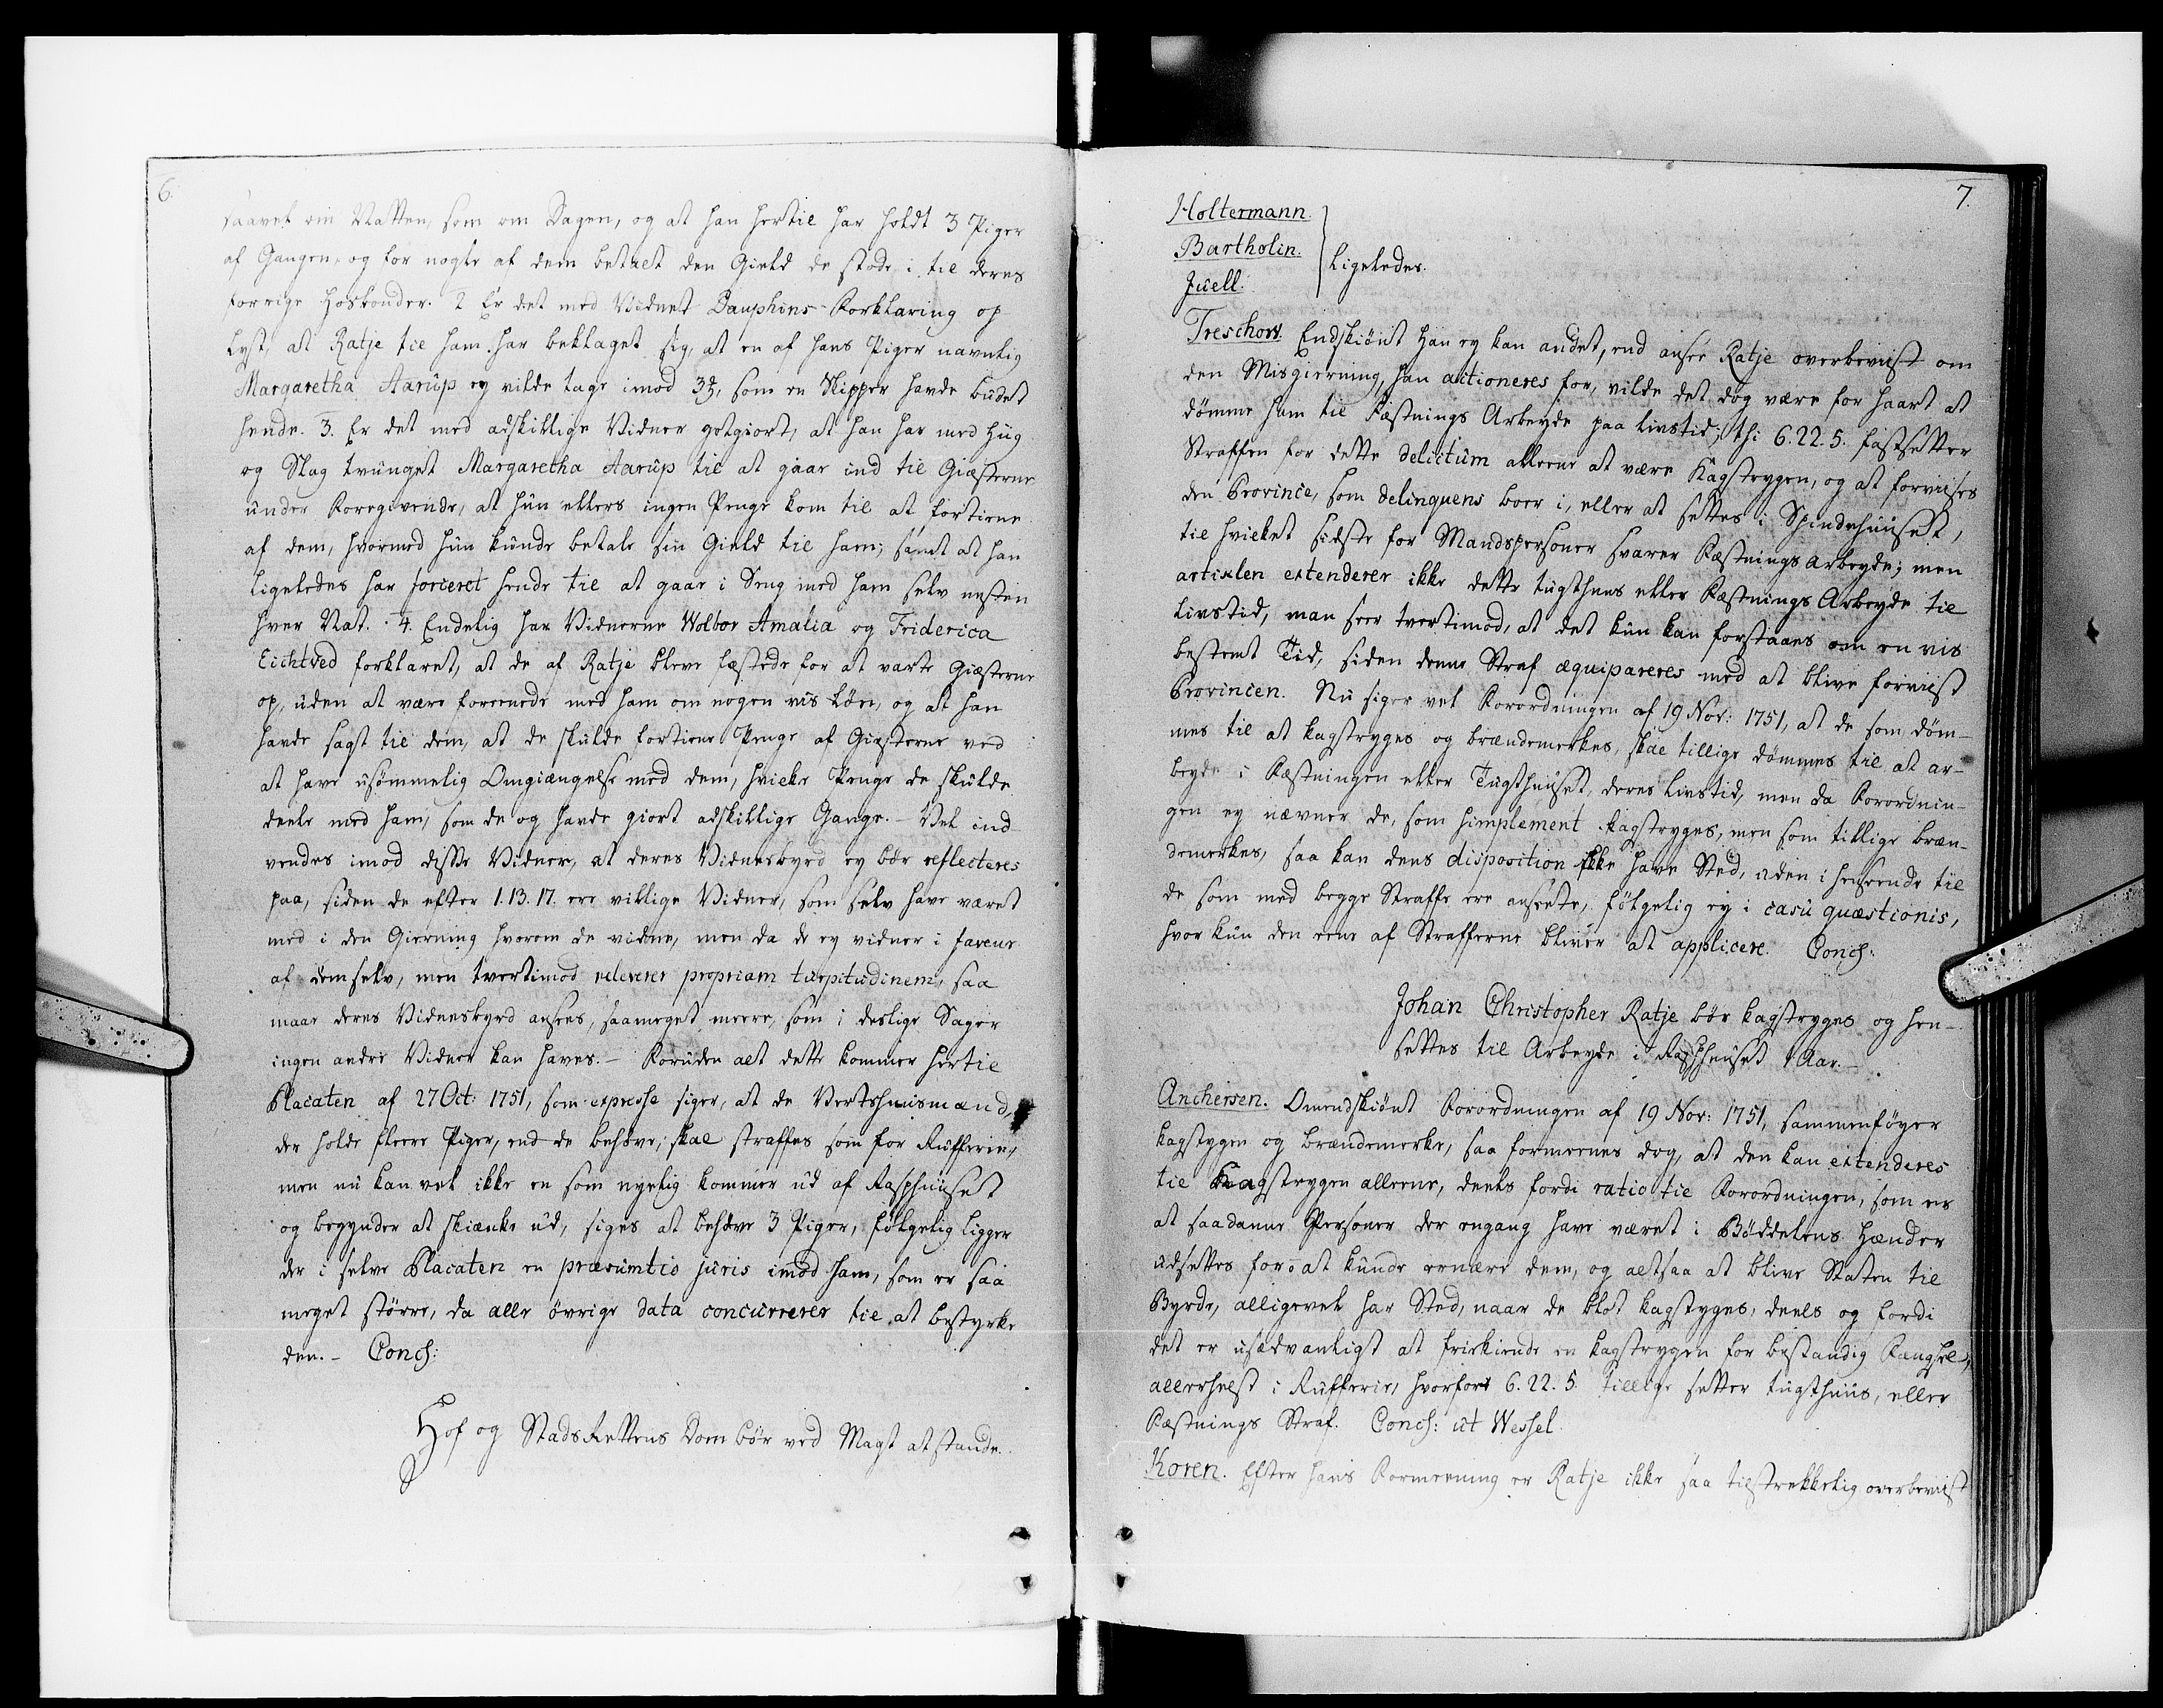 6.
saavel om Natten, som om Dagen, og at han hertil har holdt 3 Piger
af Gangen, og for nogle af dem betalt den Gield de stode i til deres
forrige Hosbonder. 2 Er det med Vidnet Dauphins Forklaring op-
lyst, at Ratje til ham har beklaget sig, at en af hans Piger navnlig
Margaretha Aarup ey vilde tage imod 3 , som en Skipper havde budet
hende. 3. Er det med adskillige Vidner gotgiort, at han har med Hug
og Slag tvunget Margaretha Aarup til at gaae ind til Giæsterne
under Foregivende, at hun ellers ingen Penge kom til at fortiene
af dem, hvormed hun kunde betale sin Gield til ham; samt at han
ligeledes har forceret hende til at gaae i Seng med ham selv nesten
hver Nat. 4. Endelig har Vidnerne Wolbor Amalia og Friderica
Eichtved forklaret, at de af Ratje bleve fæstede for at varte Giæsterne
op, uden at være foreenede med ham om nogen vis Løn, og at han
havde sagt til dem, at de skulde fortiene Penge af Giæsterne ved
at have usømmelig Omgiængelse med dem, hvilke Penge de skulde
deele med ham, som de og havde giort adskillige Gange. - Vel ind-
vendes imod disse Vidner, at deres Vidnesbyrd ey bør reflecteres
paa, siden de efter 1.13.17. ere villige Vidner, som selv have været
med i den Gierning hvorom de vidne, men da de ey vidner i faveur
af dem selv, men tvertimod releverer propriam turpitudinem, saa
maae deres Vidnesbyrd ansees, saameget meere, som i deslige Sager
ingen andre Vidner kan haves. - Foruden alt dette kommer hertil
Placaten af 27 Oct: 1751, som expresse siger, at de Vertshuusmænd,
der holde fleere Piger, end de behøve, skal straffes som for Rufferie,
men nu kan vel ikke en som nyelig kommer ud af Rasphuuset
og begynder at skiænke ud, siges at behøve 3 Piger, følgelig ligger
der i selve Placaten en præsumtio juris imod ham, som er saa
meget større, da alle øvrige data concurrerer til at bestyrke
den. - Concl:
Hof og Stads Rettens Dom bør ved Magt at stande.
7.
Holtermann.
Bartholin.
Juell.
Ligeledes.
Treschow. Endskiønt han ey kan andet, end ansee Ratje overbeviist om
den Misgierning, han actioneres for, vilde det dog være for haart at
dømme ham til Fæstnings Arbeyde paa Livstid; thi 6.22.5. fastsetter
Straffen for dette delictum alleene at være Kagstrygen, og at forvises
den Province, som delinquens boer i, eller at settes i Spindehuuset,
til hvilket sidste for Mandspersoner svarer Fæstnings Arbeyde; men
articlen extenderer ikke dette Tugthuus eller Fæstnings Arbeyde til
Livstid, man seer tvertimod, at det kun kan forstaaes om en vis
bestemt Tid, siden denne Straf æquipareres med at blive forviist
Provincen. Nu siger vel Forordningen af 19 Nov: 1751, at de som døm-
mes til at kagstryges og brændemerkes, skal tillige dømmes til at ar-
beyde i Fæstningen eller Tugthuuset, deres Livstid, men da Forordnin-
gen ey nævner de, som simplement kagstryges, men som tillige bræn-
demerkes, saa kan dens disposition ikke have Sted, uden i henseende til
de som med begge Straffe ere anseete, følgelig ey i casu quæstionis,
hvor kun den eene af Strafferne bliver at applicere. Concl:
Johan Christopher Ratje bør kagstryges og hen-
settes til Arbeyde i Rasphuuset 1 Aar. -
Anchersen. Omendskiønt Forordningen af 19 Nov: 1751, sammenføyer
kagstrygen og brændemerke, saa formeenes dog, at den kan extenderes
til Kagstrygen alleene, deels fordi ratio til Forordningen, som er
at saadanne Personer der engang have været i Bøddelens Hænder
udsettes for at kunde ernære dem, og altsaa at blive Staten til
Byrde, alligevel har Sted, naar de blot kagstryges, deels og fordi
det er usædvanligt at friekiende en kagstrygen for bestandig Fængsel,
allerhelst i Rufferie, hvorfor 6.22.5. tillige setter Tugthuus, eller
Fæstnings Straf. Concl: ut Wessel.
Koren. Efter hans Formeening er Ratje ikke saa tilstrekkelig overbeviist